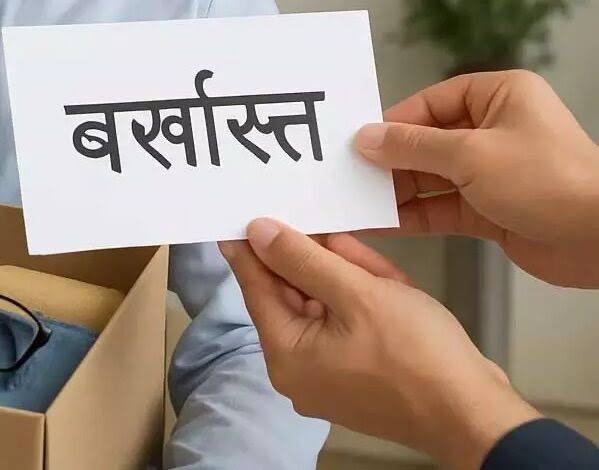 बर्खास्त